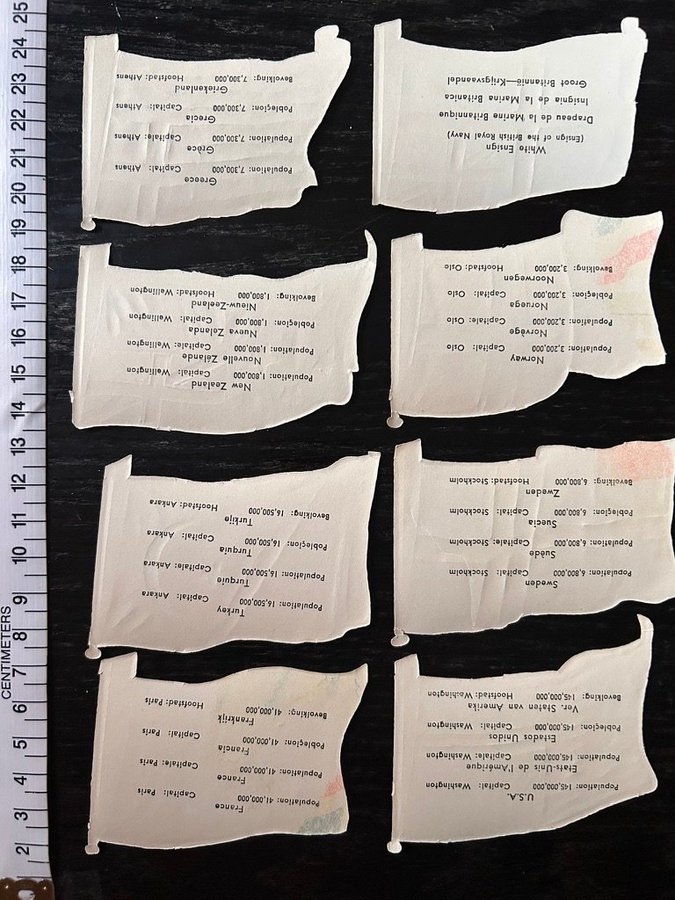 U.S.A.
Population: 145,000,000 Capital: Washington
Etats-Unis de l'Amérique
Population: 145,000,000 Capitale: Washington
Estados Unidos
Pobleçion: 145,000,000 Capital: Washington
Ver. Staten van Amerika
Bevolking: 145,000,000 Hoofstad: Washington
France
Population: 41,000,000 Capital: Paris
France
Population: 41,000,000 Capitale: Paris
Francia
Pobleçion: 41,000,000 Capital: Paris
Frankrijk
Bevolking: 41,000,000 Hoofstad: Paris
Sweden
Population: 6,800,000 Capital: Stockholm
Suède
Population: 6,800,000 Capitale: Stockholm
Suecia
Pobleçion: 6,800,000 Capital: Stockholm
Zweden
Bevolking: 6,800,000 Hoofstad: Stockholm
Turkey
Population: 16,500,000 Capital: Ankara
Turquie
Population: 16,500,000 Capitale: Ankara
Turquia
Pobleçion: 16,500,000 Capital: Ankara
Turkije
Bevolking: 16,500,000 Hoofstad: Ankara
Norway
Population: 3,200,000 Capital: Oslo
Norvège
Population: 3,200,000 Capitale: Oslo
Noruega
Pobleçion: 3,200,000 Capital: Oslo
Noorwegen
Bevolking: 3,200,000 Hoofstad: Oslo
New Zealand
Population: 1,800,000 Capital: Wellington
Nouvelle Zélande
Population: 1,800,000 Capitale: Wellington
Nueva Zelanda
Pobleçion: 1,800,000 Capital: Wellington
Nieuw-Zeeland
Bevolking: 1,800,000 Hoofstad: Wellington
White Ensign
(Ensign of the British Royal Navy)
Drapeau de la Marine Britannique
Insignia de la Marina Britanica
Groot Britannië—Krijgsvaandel
Greece
Population: 7,300,000 Capital: Athens
Grèce
Population: 7,300,000 Capitale: Athens
Grecia
Pobleçion: 7,300,000 Capital: Athens
Griekenland
Bevolking: 7,300,000 Hoofstad: Athens
CENTIMETERS
2 3 4 5 6 7 8 9 10 11 12 13 14 15 16 17 18 19 20 21 22 23 24 25